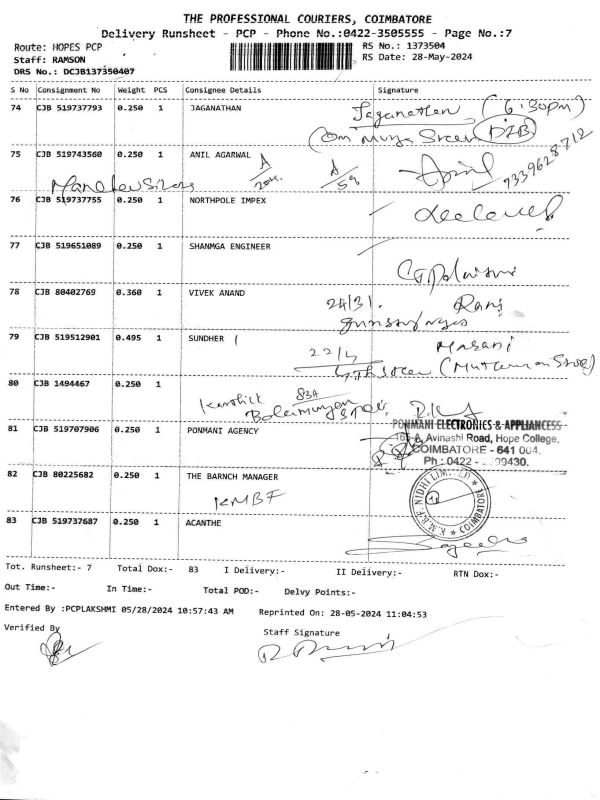 THE PROFESSIONAL COURIERS, COIMBATORE
Delivery Runsheet - PCP - Phone No.:0422-3505555 - Page No.:7
Route: HOPES PCP
RS No.: 1373504
Staff: RAMSON
RS Date: 28-May-2024
DRS No.: DCJB137350407
S No Consignment No Weight PCS Consignee Details Signature
74 CJB 519737793 0.250 1 JAGANATHAN
Jaganathan (6.30pm)
75 CJB 519743560 0.250 1 ANIL AGARWAL
9339628712
76 CJB 519737755 0.250 1 NORTHPOLE IMPEX
77 CJB 519651089 0.250 1 SHANMGA ENGINEER
78 CJB 80402769 0.360 1 VIVEK ANAND
24/31. Rani
79 CJB 519512901 0.495 1 SUNDHER
Masani
22/4
80 CJB 1494467 0.250 1
Karthick 83A
81 CJB 519707906 0.250 1 PONMANI AGENCY
PONMANI ELECTRONICS & APPLIANCESS
Avinashi Road, Hope College,
COIMBATORE - 641 004.
Ph : 0422 - 09430.
82 CJB 80225682 0.250 1 THE BARNCH MANAGER
KMBF
K.M.B.F. NIDHI LIMITED COIMBATORE
83 CJB 519737687 0.250 1 ACANTHE
Tot. Runsheet:- 7 Total Dox:- 83 I Delivery:- II Delivery:- RTN Dox:-
Out Time:- In Time:- Total POD:- Delvy Points:-
Entered By :PCPLAKSHMI 05/28/2024 10:57:43 AM Reprinted On: 28-05-2024 11:04:53
Verified By
Staff Signature